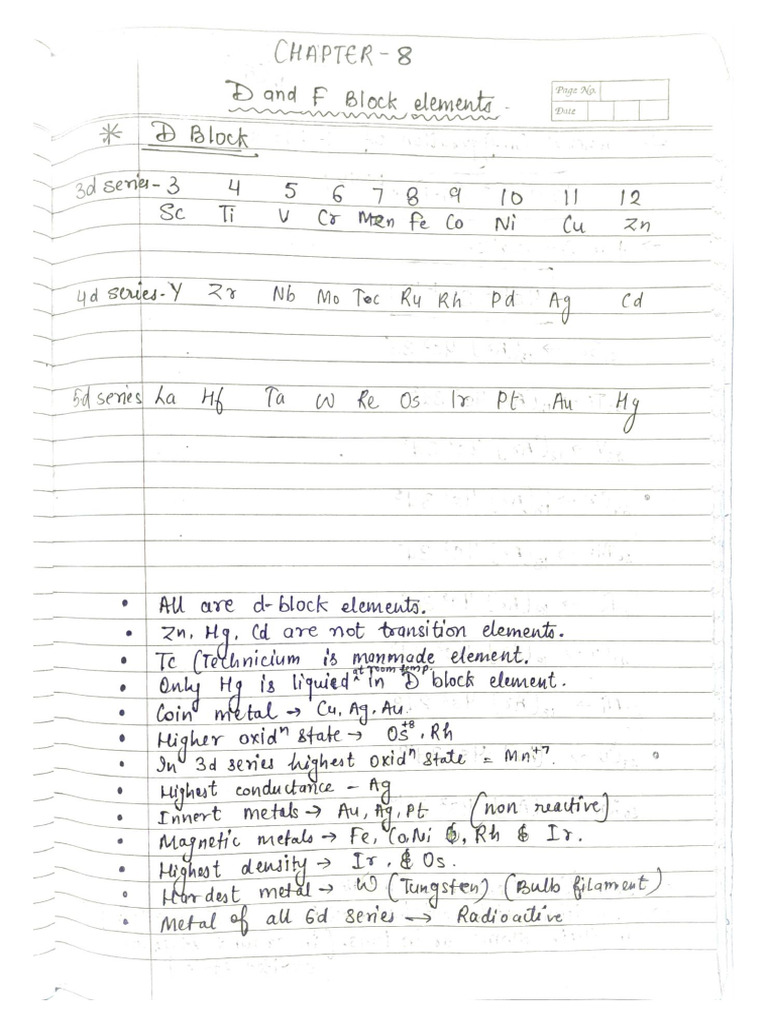 CHAPTER - 8
D and F Block elements.
Page No.
Date
* D Block
3d series - 3 4 5 6 7 8 9 10 11 12
Sc Ti V Cr Mn Fe Co Ni Cu Zn
4d series - Y Zr Nb Mo Tc Ru Rh Pd Ag Cd
5d series La Hf Ta W Re Os Ir Pt Au Hg
• All are d-block elements.
• Zn, Hg, Cd are not transition elements.
• Tc (Technicium is manmade element.
• Only Hg is liquied at room temp. in D block element.
• Coin metal → Cu, Ag, Au.
• Higher oxidⁿ state → Os⁺⁸, Rh
• In 3d series highest oxidⁿ state = Mn⁺⁷.
• Highest conductance - Ag
• Innert metals → Au, Ag, Pt (non reactive)
• Magnetic metals → Fe, Co, Ni, Rh & Ir.
• Highest density → Ir, & Os.
• Hardest metal → W (Tungsten) (Bulb filament)
• Metal of all 6d series → Radioactive